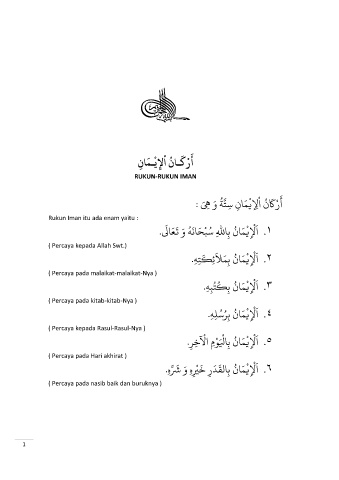 أَرْكَـانُ اْلإِيْـمَـانِ
RUKUN-RUKUN IMAN
أَرْكَانُ اْلاِيْمَانِ سِتَّةٌ وَ هِىَ :
Rukun Iman itu ada enam yaitu :
١. اَلْإِيْمَانُ بِاللهِ سُبْحَانَهُ وَ تَعَالَى.
( Percaya kepada Allah Swt.)
٢. اَلْإِيْمَانُ بِمَلَآئِكَتِهِ.
( Percaya pada malaikat-malaikat-Nya )
٣. اَلْإِيْمَانُ بِكُتُبِهِ.
( Percaya pada kitab-kitab-Nya )
٤. اَلْإِيْمَانُ بِرُسُلِهِ.
( Percaya kepada Rasul-Rasul-Nya )
٥. اَلْإِيْمَانُ بِالْيَوْمِ الْآخِرِ.
( Percaya pada Hari akhirat )
٦. اَلْإِيْمَانُ بِالقَدَرِ خَيْرِهِ وَ شَرِّهِ.
( Percaya pada nasib baik dan buruknya )
1